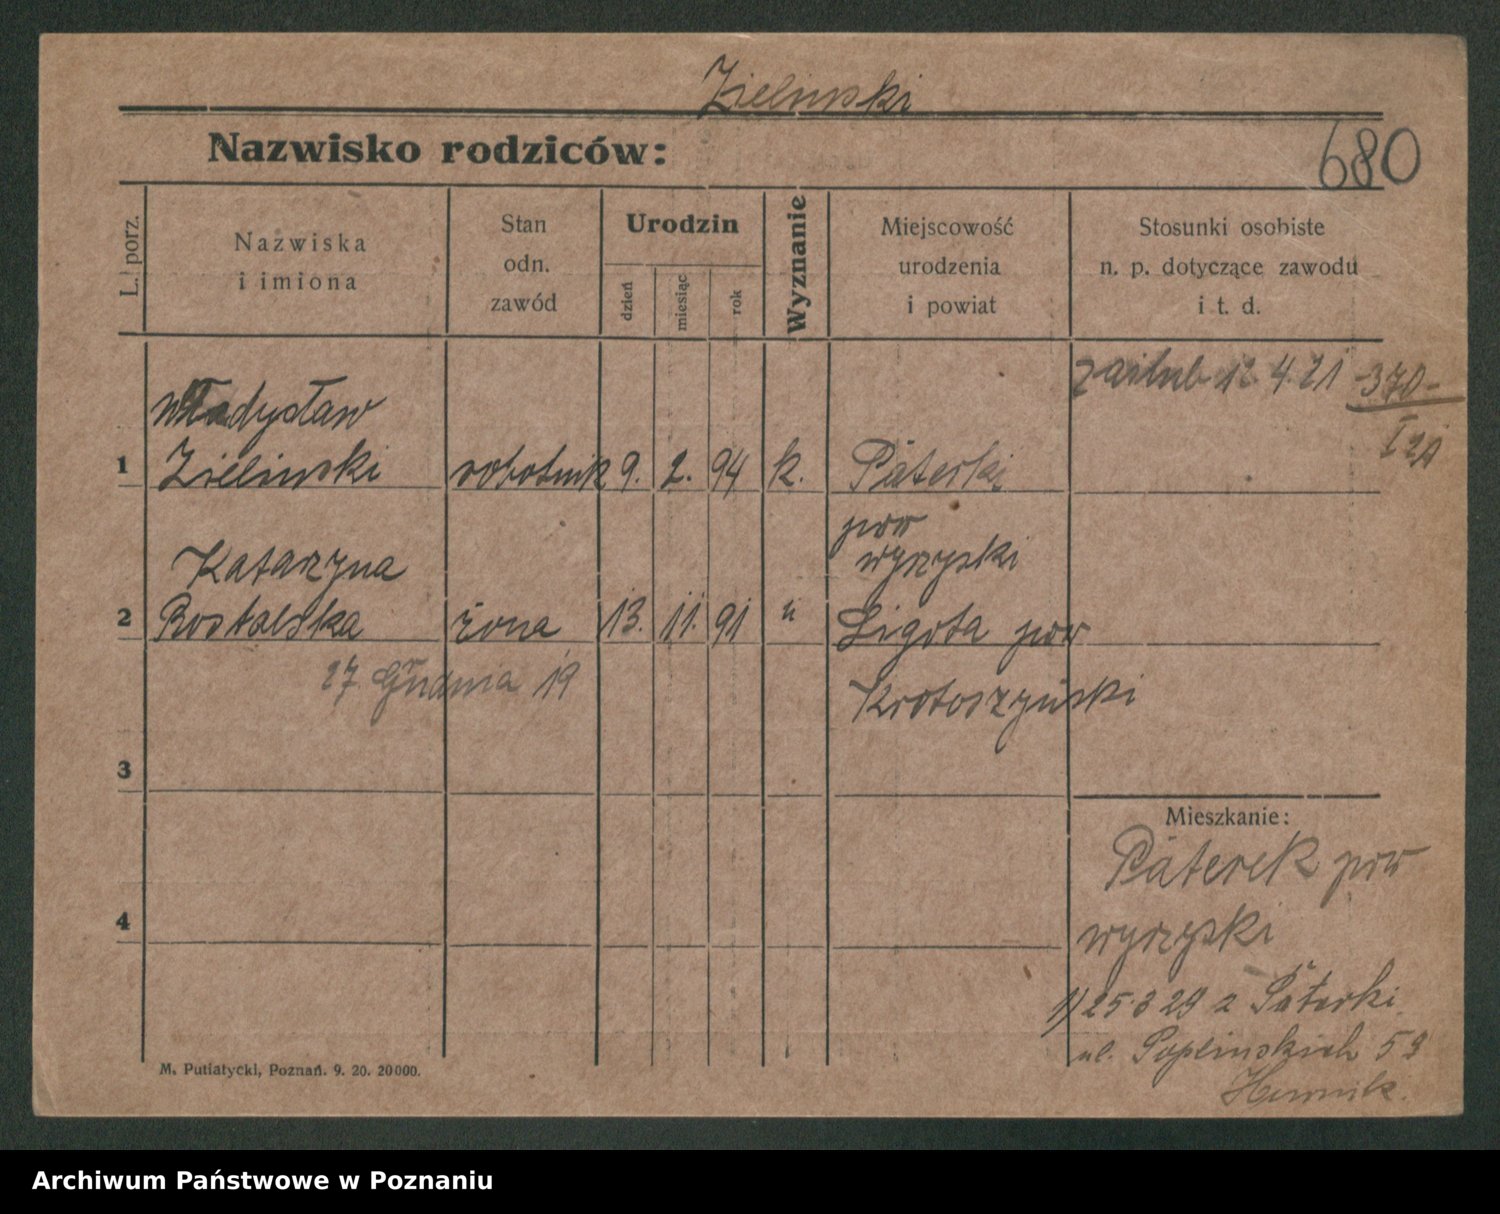 Zielinski
Nazwisko rodziców:
680
L. porz.
Nazwiska
i imiona
Stan
odn.
zawód
Urodzin
dzień
miesiąc
rok
Wyznanie
Miejscowość
urodzenia
i powiat
Stosunki osobiste
n. p. dotyczące zawodu
i t. d.
zaślub 12. 4. 21
-370-
I 21
Władysław
1 Zielinski robotnik 9. 2. 94 k. Päterki
pow
wyrzyski
Katarzyna
2 Rostalska żona 13. 11. 91 " Ligota pow
27 Grudnia 19
Krotoszyński
3
Mieszkanie:
Päterek pow
4
wyrzyski
1) 25.3 29 z Päterki
ul. Poplinskich 5
M. Putiatycki, Poznań. 9. 20. 20000.
Archiwum Państwowe w Poznaniu